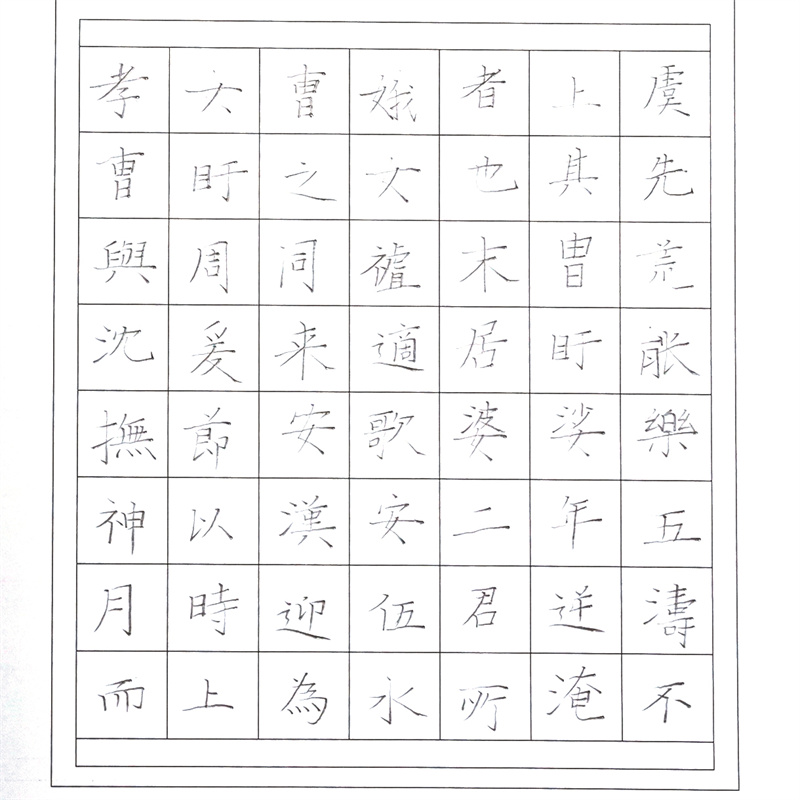 孝女曹娥者上虞
曹盱之女也其先
與周同祖末胄荒
沈爰来適居盱能
撫節安歌婆娑樂
神以漢安二年五
月時迎伍君逆濤
而上為水所淹不